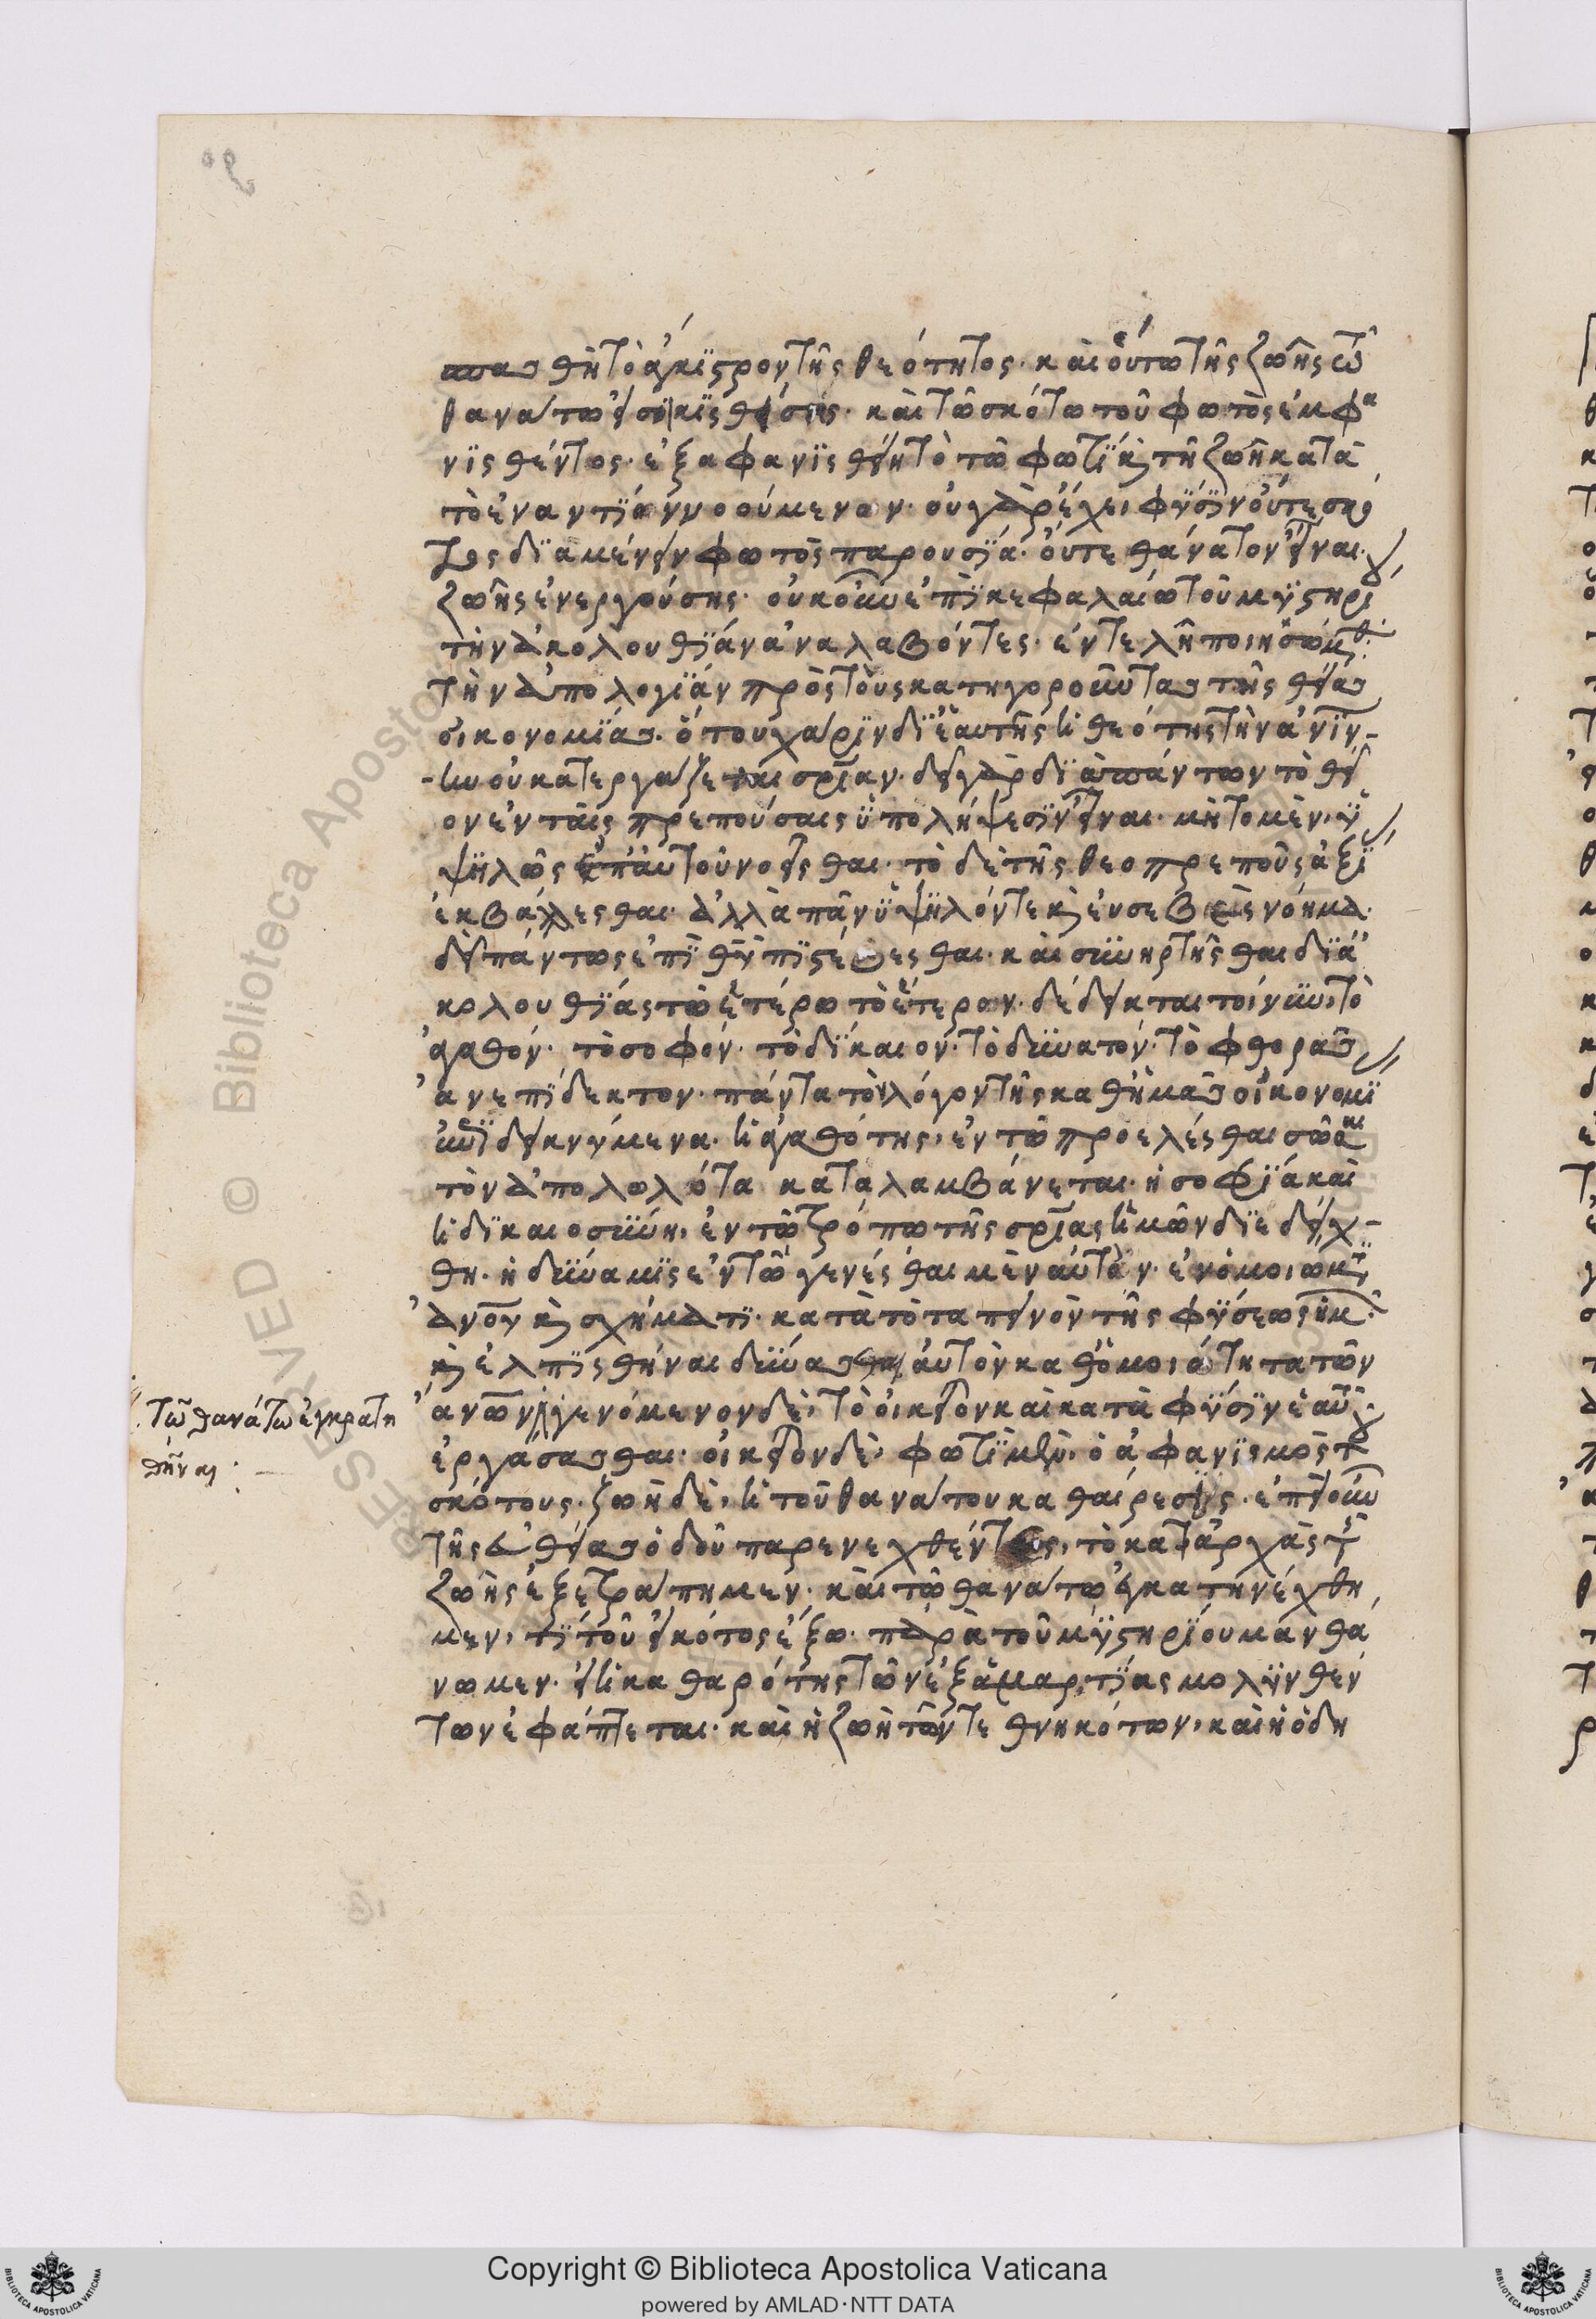 σπασθῆ τὸ ἄγκιστρον τῆς θεότητος· καὶ οὕτω τῆς ζωῆς τῶ
θανάτω εἰσοικισθείσης· καὶ τῶ σκότω τοῦ φωτὸς ἐμφα
νισθέντος· ἐξαφανισθείη τὸ τῶ φωτὶ κ τῆ ζωῆ κατὰ
τὸ ἐναντίον νοούμενον· οὐ γὰρ ἔχει φύσιν οὔτε σκό
τος διαμένειν φωτὸς παρουσία· οὔτε θάνατον εἶναι
ζωῆς ἐνεργούσης· οὐκοῦν ἐπὶ κεφαλαίω τοῦ μυστηρί
τὴν ἀκολουθίαν ἀναλαβόντες· ἐντελῆ ποιησώμεθ
τὴν ἀπολογίαν πρὸς τοὺς κατηγοροῦντας τῆς θείας
οἰκονομίας· ὅτου χάριν δι ἑαυτῆς ἡ θεότης τὴν ἀνίν
ην οὐ κατεργάζεται σρίαν· δεῖ γὰρ διὰ πάντων τὸ θεῖ
ον ἐν ταῖς πρεπούσαις ὑπολήψεσιν εἶναι· μὴ τὸ μὲν, ὑ
ψηλῶς ἐπ αὐτοῦ νοεῖσθαι· τὸ δὲ τῆς θεοπρεποῦς ἀξί
ἐκβάλλεσθαι· ἀλλὰ πᾶν ὑψηλόν τε κ εὐσεβὲς νόημα·
δεῖ πάντως ἐπὶ θῦ πιστεύεσθαι· καὶ συνηρτῆσθαι δι ἀ
κολουθίας τῶ ἑτέρω τὸ ἕτερον· δέδεικται τοίνυν, τὸ
ἀγαθόν· τὸ σοφόν· τὸ δίκαιον· τὸ δυνατόν· τὸ φθορᾶς
ἀνεπίδεκτον· πάντα τὸν λόγον τῆς καθ ἡμᾶς οἰκονομί
δεικνύμενα· ἡ ἀγαθότης, ἐν τῶ προελέσθαι σῶσαι
τὸν ἀπολωλότα καταλαμβάνεται· ἡ σοφία καὶ
ἡ δικαιοσύνη, ἐν τῶ τρόπω τῆς σρίας ἡμῶν διεδείχ
θη· ἡ δύναμις ἐν τῶ γενέσθαι μὲν αὐτὸν· ἐν ὁμοιώμτι
ἀνου κ σχήματι· κατὰ τὸ ταπεινὸν τῆς φύσεως ἡμ
κ ἐλπισθῆναι δύνασθαι αὐτὸν καθ ὁμοιότητα τῶν
ἀνων γενόμενον δὲ, τὸ οἰκεῖον καὶ κατὰ φύσιν ἑαυ
ἐργάσασθαι· οἰκεῖον δὲ, φωτὶ μὲν, ὁ ἀφανισμὸς τ
σκότους· ζωῆ δὲ, ἡ τοῦ θανάτου καθαίρεσις· ἐπεὶ οὖν
τῆς εὐθείας ὁδοῦ παρενεχθέντες, τὸ κατ ἀρχὰς τ
ζωῆς ἐξετράπημεν· καὶ τῶ θανάτω ἐγκατηνέχθη
μεν, τί τοῦ εἰκότος ἔξω παρὰ τοῦ μυστηρίου μανθά
νωμεν· εἰ ἡ καθαρότης τῶν ἐξ ἁμαρτίας μολυνθέν
των ἐφάπτεται· καὶ ἡ ζωὴ τῶν τεθνηκότων, καὶ ἡ ὁδη
Τῶ θανάτω ἐγκρατη
θῆναι
Copyright © Biblioteca Apostolica Vaticana
powered by AMLAD·NTT DATA